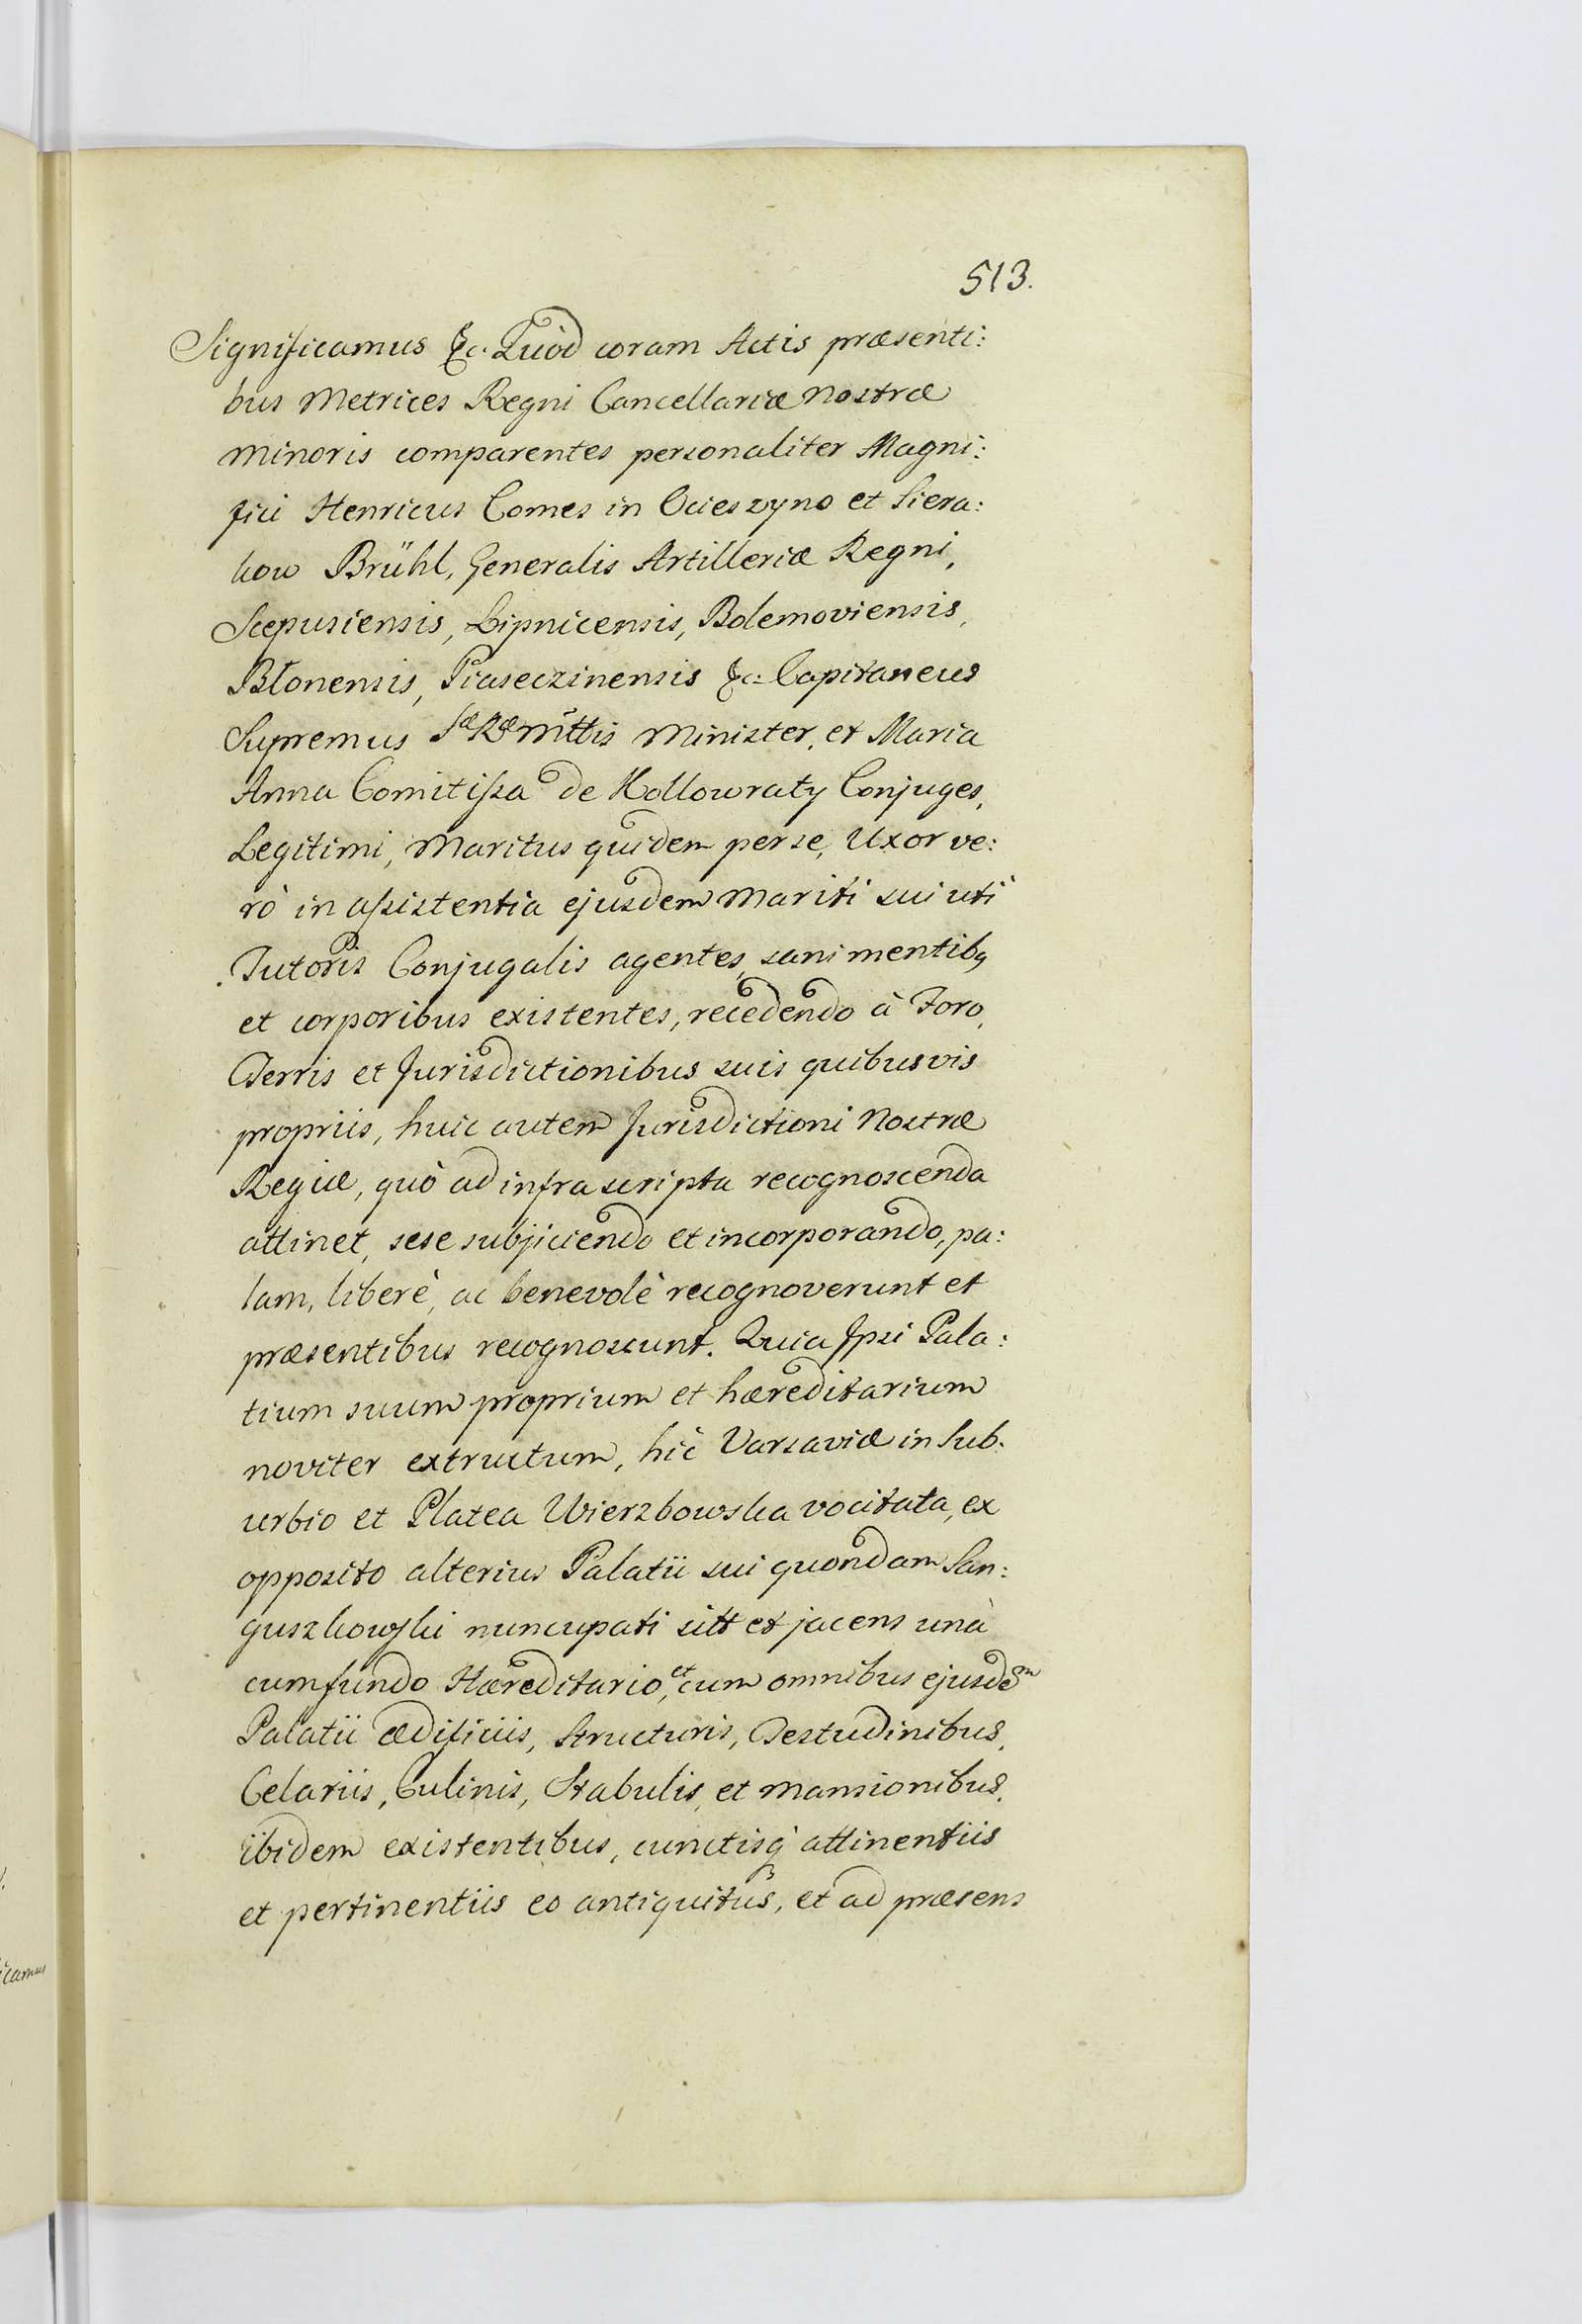 513.
Significamus &c. Quòd coram Actis præsenti:
bus Metrices Regni Cancellariæ Nostræ
Minoris comparentes personaliter Magni:
fici Henricus Comes in Ocieszyno et Siera:
kow Brühl, Generalis Artilleriæ Regni,
Scepusiensis, Lipnicensis, Bolemoviensis,
Błonensis, Piaseczinensis &c: Capitaneus
Supremus Sæ Ræ Mttis Minister, et Maria
Anna Comitissa de Kollowraty Conjuges,
Legitimi, Maritus quidem per se, Uxor ve:
rò in assistentia ejusdem Mariti sui uti
Tutoris Conjugalis agentes, sani mentibq
et corporibus existentes, recedendo à Foro,
Terris et Jurisdictionibus suis quibusvis
propriis, huic autem Jurisdictioni Nostræ
Regiæ, quò ad infra scripta recognoscenda
attinet, sese subjiciendo et incorporando, pa:
lam, liberè, ac benevolè recognoverunt et
præsentibus recognoscunt. Quia Ipsi Pala:
tium suum proprium et hæreditarium
noviter extructum, hìc Varsaviæ in Sub:
urbio et Platea Wierzbowska vocitata, ex
opposito alterius Palatii sui quondam San:
guszkowski nuncupati sitt et jacens unà
cum fundo Hæreditario, et cum omnibus ejusdem
Palatii ædificiis, Structuris, Testudinibus,
Celariis, Culinis, Stabulis, et Mansionibus,
ibidem existentibus, cunctisq attinentiis
et pertinentiis eo antiquitùs, et ad præsens
icamus